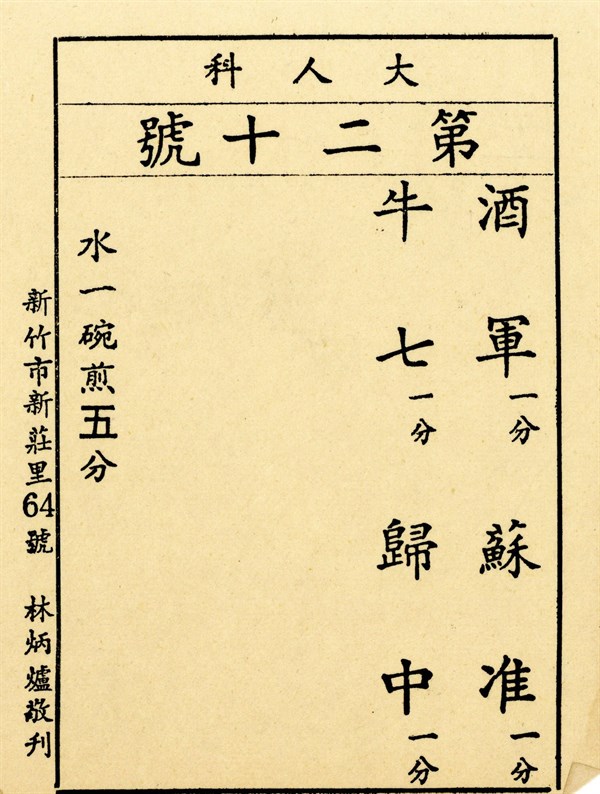 大人科
第二十號
酒軍一分 蘇准一分
牛七一分 歸中一分
水一碗煎五分
新竹市新莊里64號 林炳爐敬刊